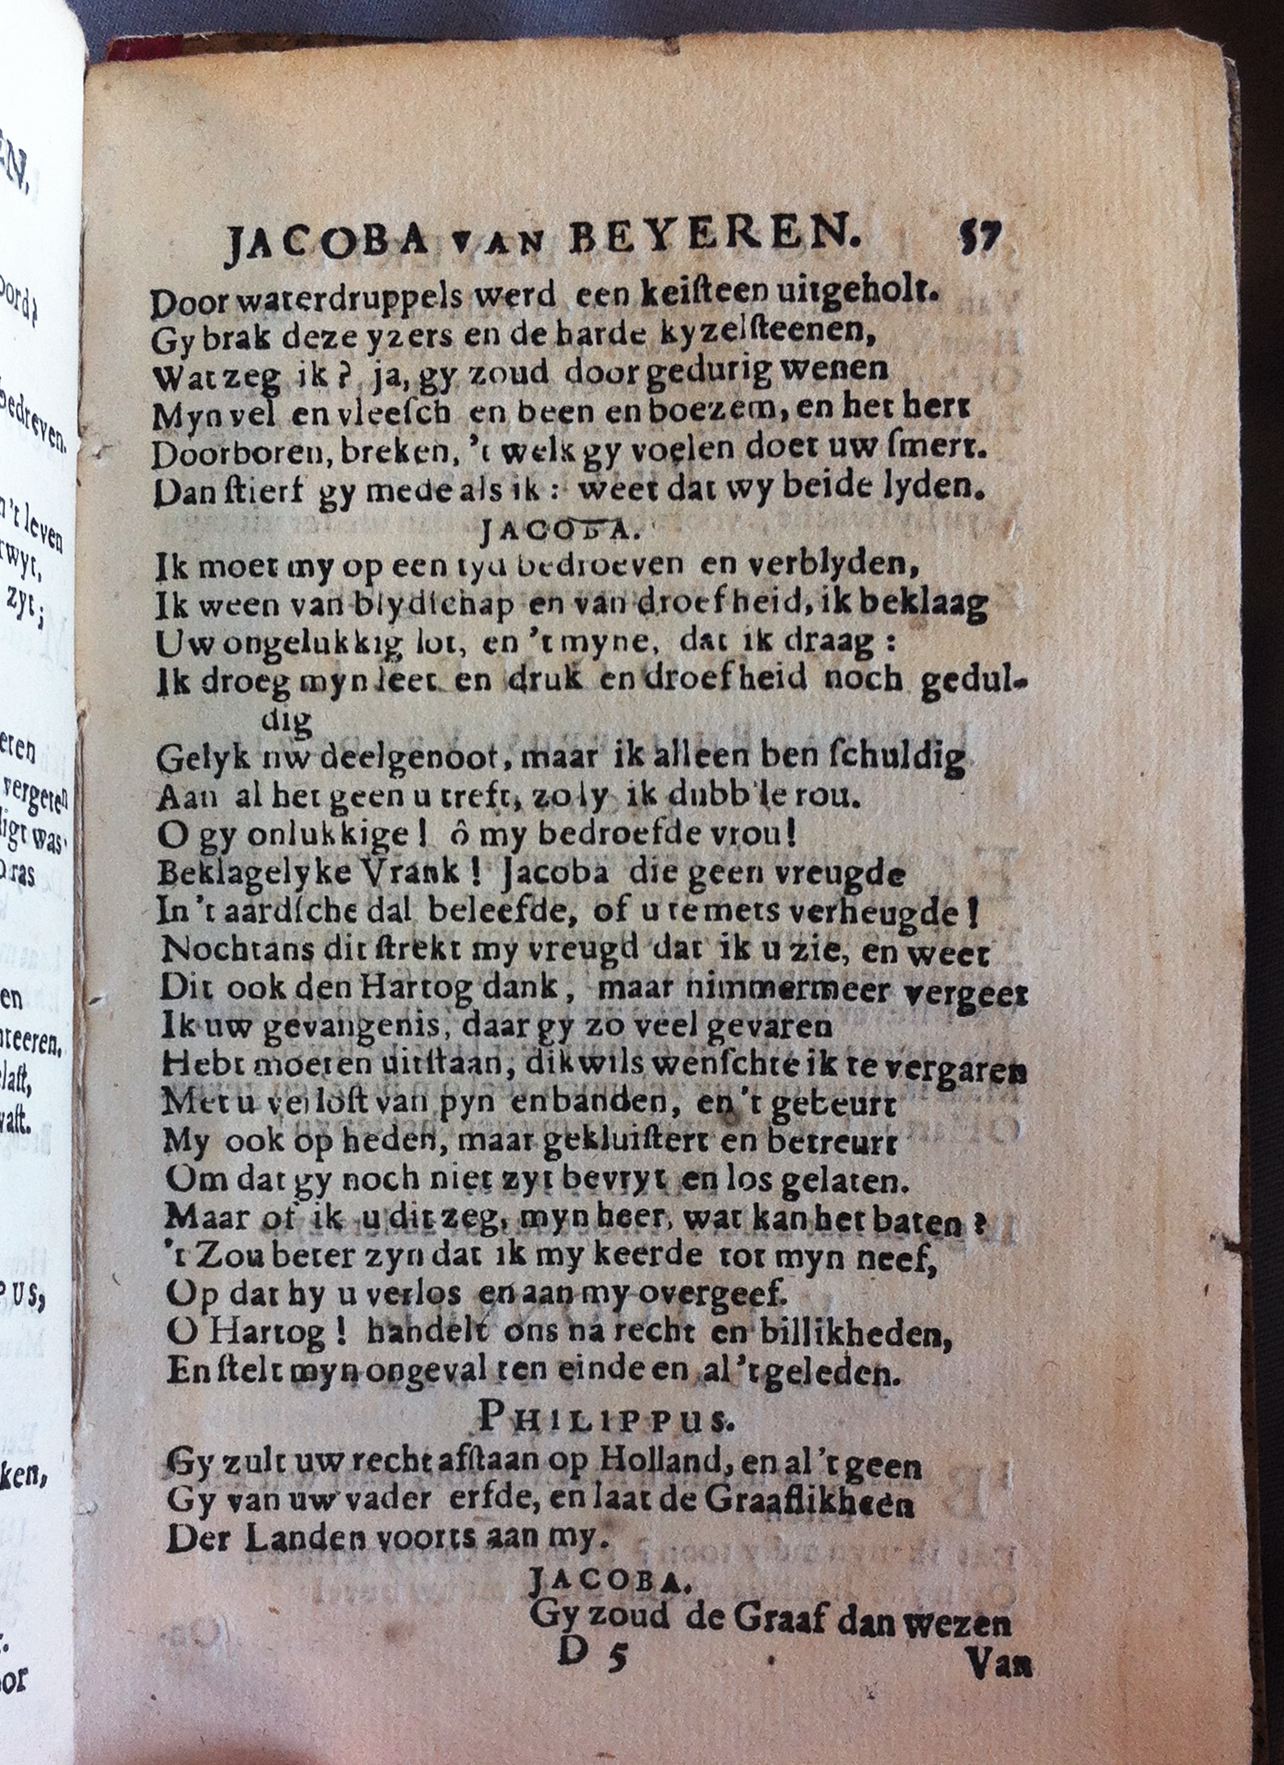 JACOBA VAN BEYEREN. 57
Door waterdruppels werd een keiſteen uitgeholt.
Gy brak deze yzers en de harde kyzelſteenen,
Wat zeg ik? ja, gy zoud door gedurig wenen
Myn vel en vleeſch en been en boezem, en het hert
Doorboren, breken, 't welk gy voelen doet uw ſmert.
Dan ſtierf gy mede als ik: weet dat wy beide lyden.
JACOBA.
Ik moet my op een tyd bedroeven en verblyden,
Ik ween van blydſchap en van droefheid, ik beklaag
Uw ongelukkig lot, en 't myne, dat ik draag:
Ik droeg myn leet en druk en droefheid noch gedul-
dig
Gelyk uw deelgenoot, maar ik alleen ben ſchuldig
Aan al het geen u treft, zo ly ik dubb'le rou.
O gy onlukkige! ô my bedroefde vrou!
Beklagelyke Vrank! Jacoba die geen vreugde
In 't aardſche dal beleefde, of u temets verheugde!
Nochtans dit ſtrekt my vreugd dat ik u zie, en weet
Dit ook den Hartog dank, maar nimmermeer vergeet
Ik uw gevangenis, daar gy zo veel gevaren
Hebt moeten uitſtaan, dikwils wenſchte ik te vergaren
Met u verloſt van pyn en banden, en 't gebeurt
My ook op heden, maar gekluiſtert en betreurt
Om dat gy noch niet zyt bevryt en los gelaten.
Maar of ik u dit zeg, myn heer, wat kan het baten?
't Zou beter zyn dat ik my keerde tot myn neef,
Op dat hy u verlos en aan my overgeef.
O Hartog! handelt ons na recht en billikheden,
En ſtelt myn ongeval ten einde en al 't geleden.
PHILIPPUS.
Gy zult uw recht afſtaan op Holland, en al 't geen
Gy van uw vader erfde, en laat de Graaflikheên
Der Landen voorts aan my.
JACOBA.
Gy zoud de Graaf dan wezen
D 5 Van